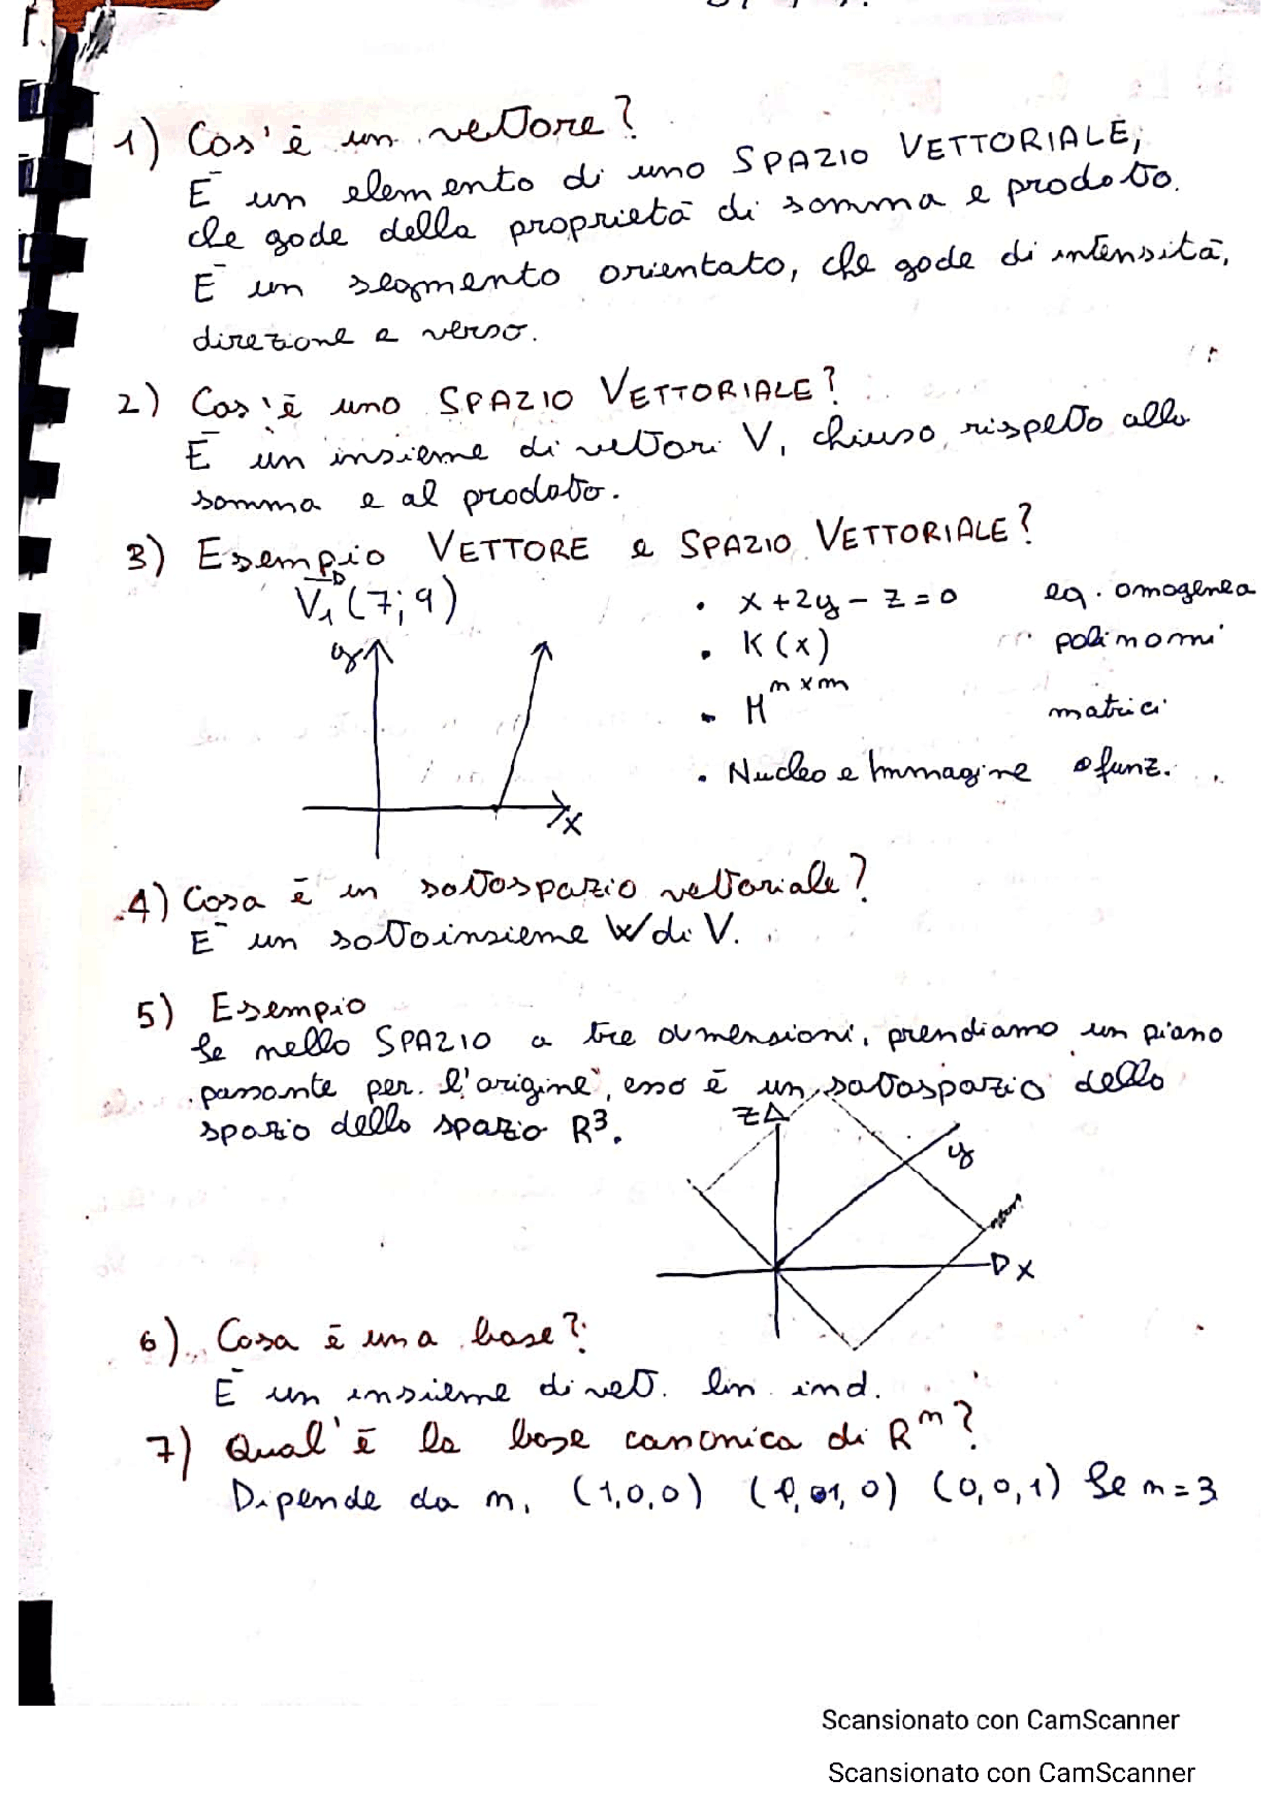 1) Cos'è un vettore?
È un elemento di uno SPAZIO VETTORIALE,
che gode della proprietà di somma e prodotto.
È un segmento orientato, che gode di intensità,
direzione e verso.
2) Cos'è uno SPAZIO VETTORIALE?
È un insieme di vettori V, chiuso rispetto alla
somma e al prodotto.
3) Esempio VETTORE e SPAZIO VETTORIALE?
V₁ (7; 9)
• x + 2y - z = 0 eq. omogenea
• K (x) polinomi
• M^{n x m} matrici
• Nucleo e Immagine funz.
y
x
4) Cosa è un sottospazio vettoriale?
È un sottoinsieme W di V.
5) Esempio
Se nello SPAZIO a tre dimensioni, prendiamo un piano
passante per l'origine, esso è un sottospazio dello
spazio dello spazio R³.
z
y
x
6) Cosa è una base?
È un insieme di vett. lin. ind.
7) Qual'è la base canonica di Rⁿ?
Dipende da n, (1,0,0) (0,1,0) (0,0,1) Se n = 3
Scansionato con CamScanner
Scansionato con CamScanner